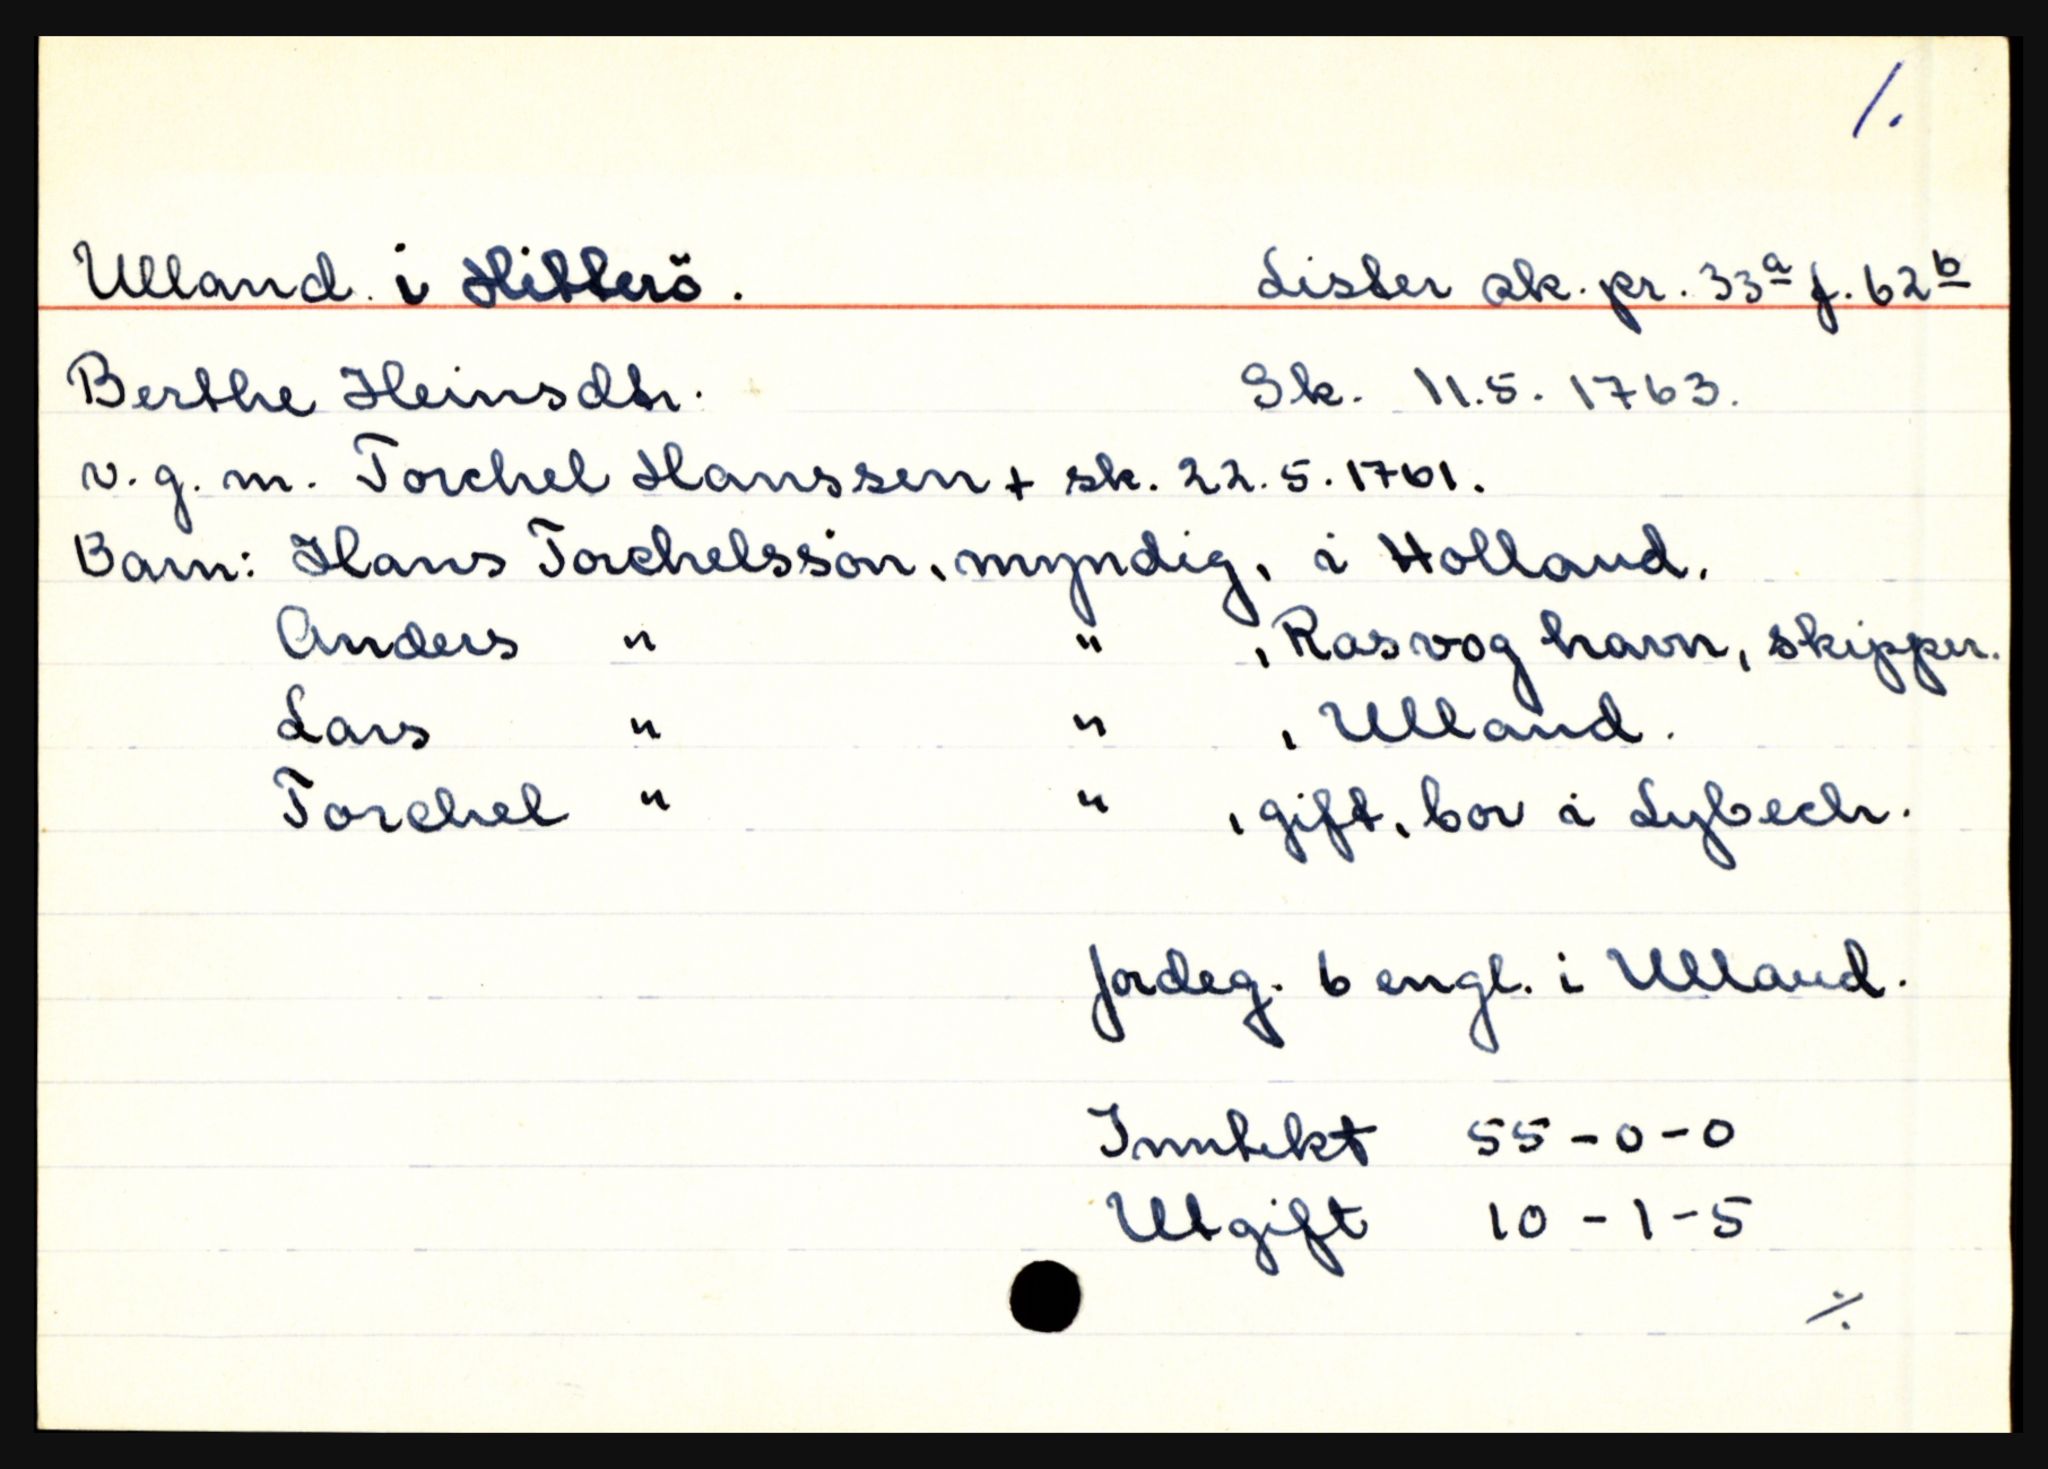 1.
Ulland i Hitterö. Lister sk. pr. 33a f. 62b
Berthe Heinsdtr. Sk. 11.5.1763.
v. g. m. Torchel Hanssen + sk. 22.5.1761.
Barn: Hans Torchelssön, myndig, i Holland.
Anders " " , Rasvog havn, skipper.
Lars " " , Ulland.
Torchel " " , gift, bor i Lybech.
Jordeg. 6 engl. i Ulland.
Inntekt 55-0-0
Utgift 10-1-5
./.